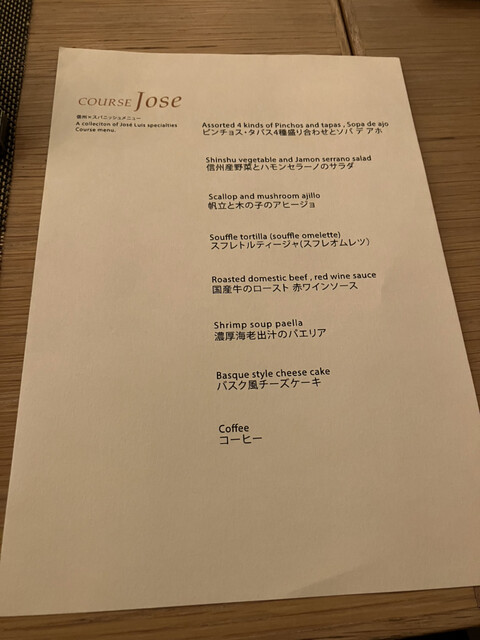 COURSE Jose
信州×スパニッシュメニュー
A colleciton of José Luis specialties
Course menu.
Assorted 4 kinds of Pinchos and tapas , Sopa de ajo
ピンチョス・タパス4種盛り合わせとソパ デ アホ
Shinshu vegetable and Jamon serrano salad
信州産野菜とハモンセラーノのサラダ
Scallop and mushroom ajillo
帆立と木の子のアヒージョ
Souffle tortilla (souffle omelette)
スフレトルティージャ(スフレオムレツ)
Roasted domestic beef , red wine sauce
国産牛のロースト 赤ワインソース
Shrimp soup paella
濃厚海老出汁のパエリア
Basque style cheese cake
バスク風チーズケーキ
Coffee
コーヒー